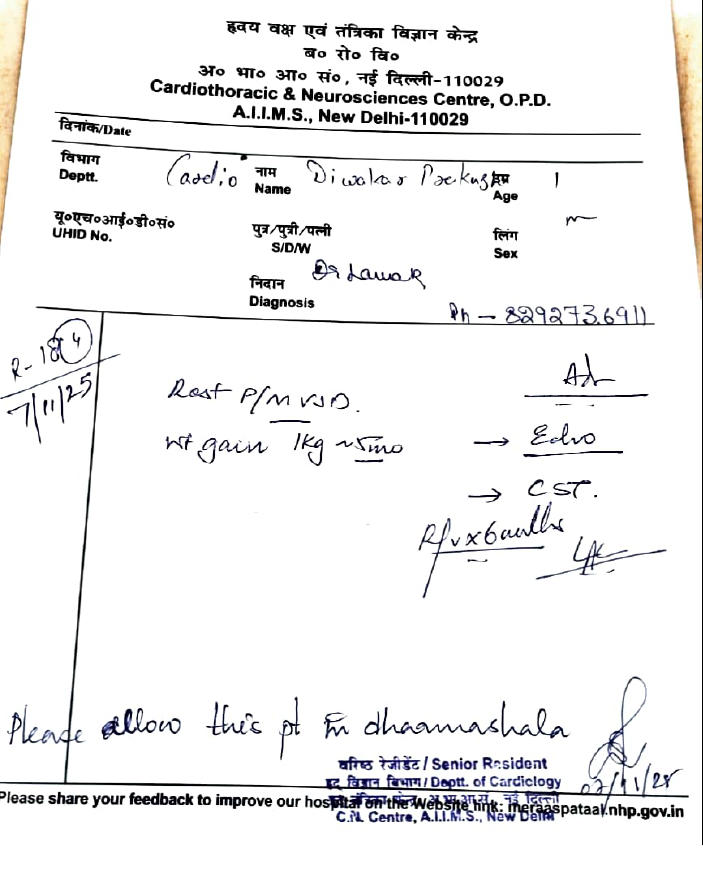 हृदय वक्ष एवं तंत्रिका विज्ञान केन्द्र
ब० रो० वि०
अ० भा० आ० सं०, नई दिल्ली-110029
Cardiothoracic & Neurosciences Centre, O.P.D.
A.I.I.M.S., New Delhi-110029
दिनांक/Date
विभाग
Deptt. Cardio
नाम
Name Diwakar Prakash
उम्र
Age 1
यू०एच०आई०डी०सं०
UHID No.
पुत्र/पुत्री/पत्नी
S/D/W
लिंग
Sex m
निदान
Diagnosis
Ph - 8292736911
R-18 4
7/11/25
P/M VSD.
Wt gain 1kg ~5mo
Ad
→ Echo
→ CST.
R/v x 6 months
Please allow this pt in dharmashala
07/11/25
वरिष्ठ रेजीडेंट / Senior Resident
हृद विज्ञान विभाग / Deptt. of Cardiology
C.N. Centre, A.I.I.M.S., New Delhi
Please share your feedback to improve our hospital on the Website link: meraaspataal.nhp.gov.in